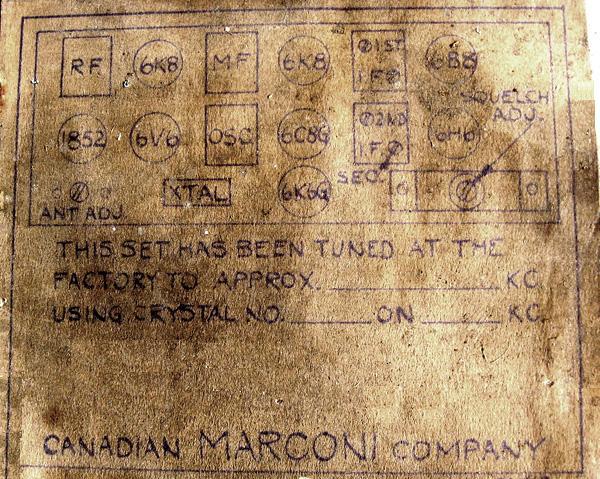 R.F. 6K8 MF 6K8 1ST I.F. 6B8
SQUELCH ADJ.
1852 6V6 OSC 6C8G 2ND I.F. 6H6
SEC.
ANT ADJ XTAL 6K6G
THIS SET HAS BEEN TUNED AT THE
FACTORY TO APPROX. __________ KC
USING CRYSTAL NO. ______ ON ______ KC.
CANADIAN MARCONI COMPANY